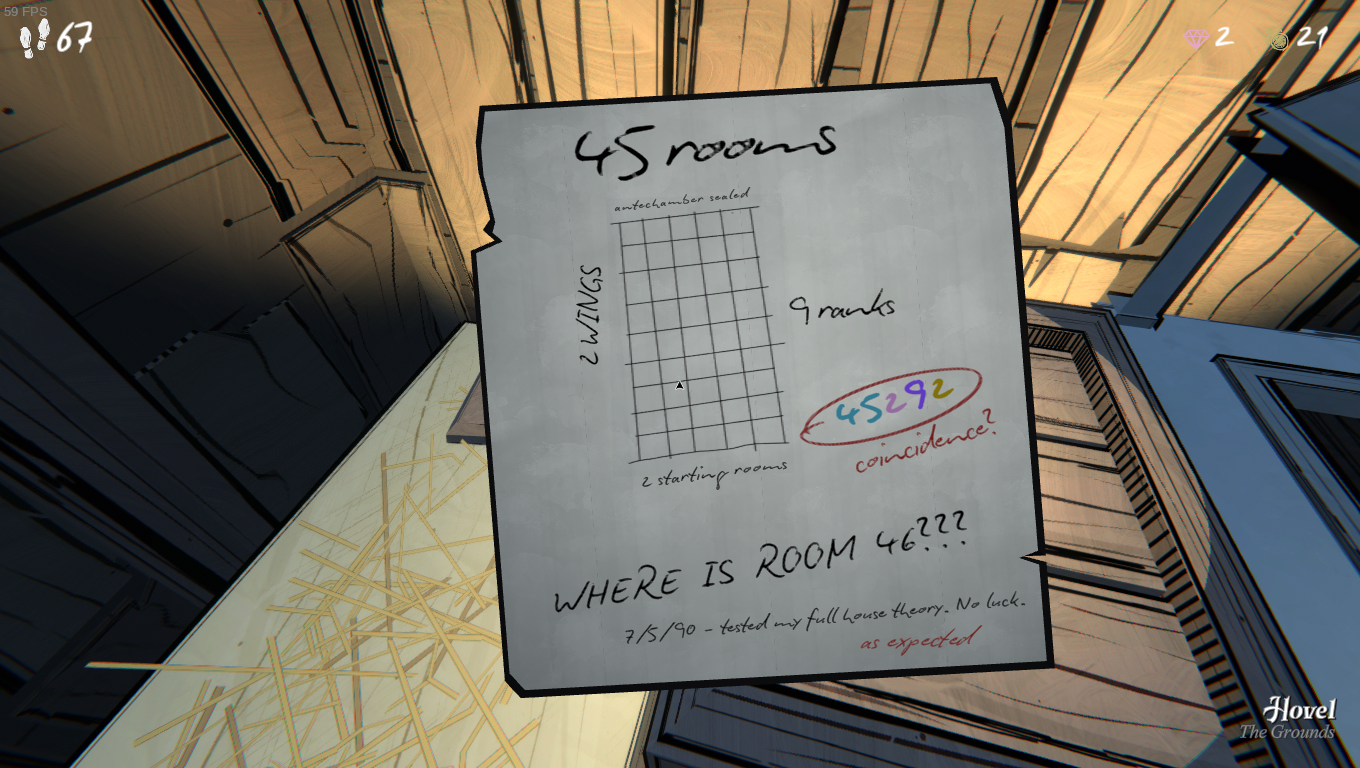 59 FPS
67
2
21
45 rooms
antechamber sealed
2 WINGS
9 ranks
45292
coincidence?
2 starting rooms
WHERE IS ROOM 46???
7/5/90 - tested my full house theory. No luck.
as expected
Hovel
The Grounds